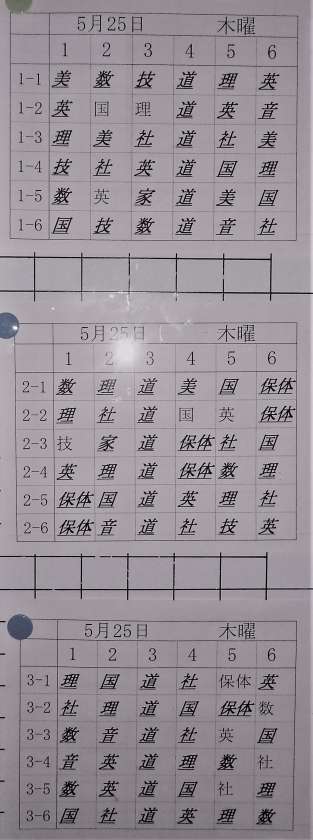 5月25日 木曜
1 2 3 4 5 6
1-1 美 数 技 道 理 英
1-2 英 国 理 道 英 音
1-3 理 美 社 道 社 美
1-4 技 社 英 道 国 理
1-5 数 英 家 道 美 国
1-6 国 技 数 道 音 社
5月25日 木曜
1 2 3 4 5 6
2-1 数 理 道 美 国 保体
2-2 理 社 道 国 英 保体
2-3 技 家 道 保体 社 国
2-4 英 理 道 保体 数 理
2-5 保体 国 道 英 理 社
2-6 保体 音 道 社 技 英
5月25日 木曜
1 2 3 4 5 6
3-1 理 国 道 社 保体 英
3-2 社 理 道 国 保体 数
3-3 数 音 道 社 英 国
3-4 音 英 道 理 数 社
3-5 数 英 道 国 社 理
3-6 国 社 道 英 理 数